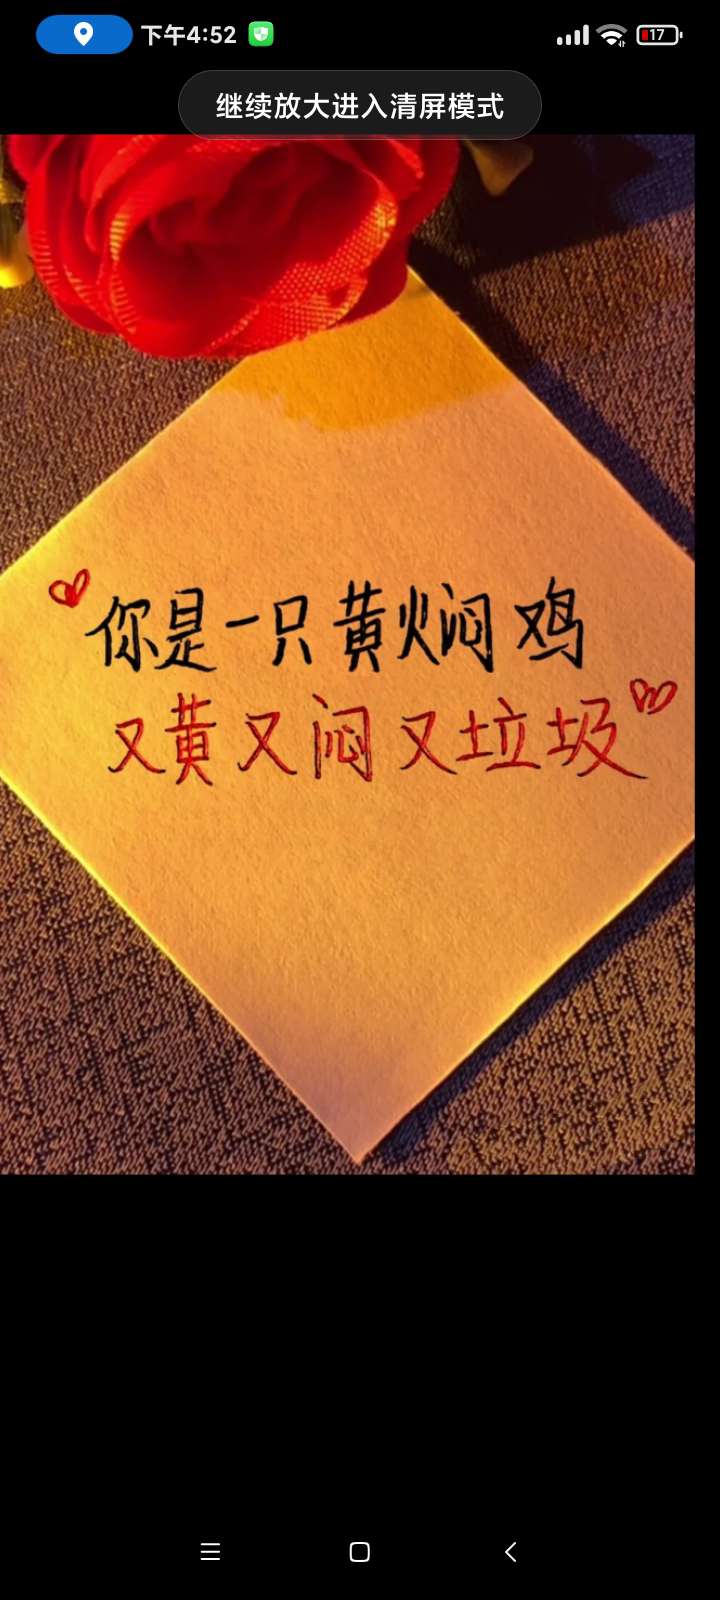 下午4:52
17
继续放大进入清屏模式
你是一只黄焖鸡
又黄又闷又垃圾